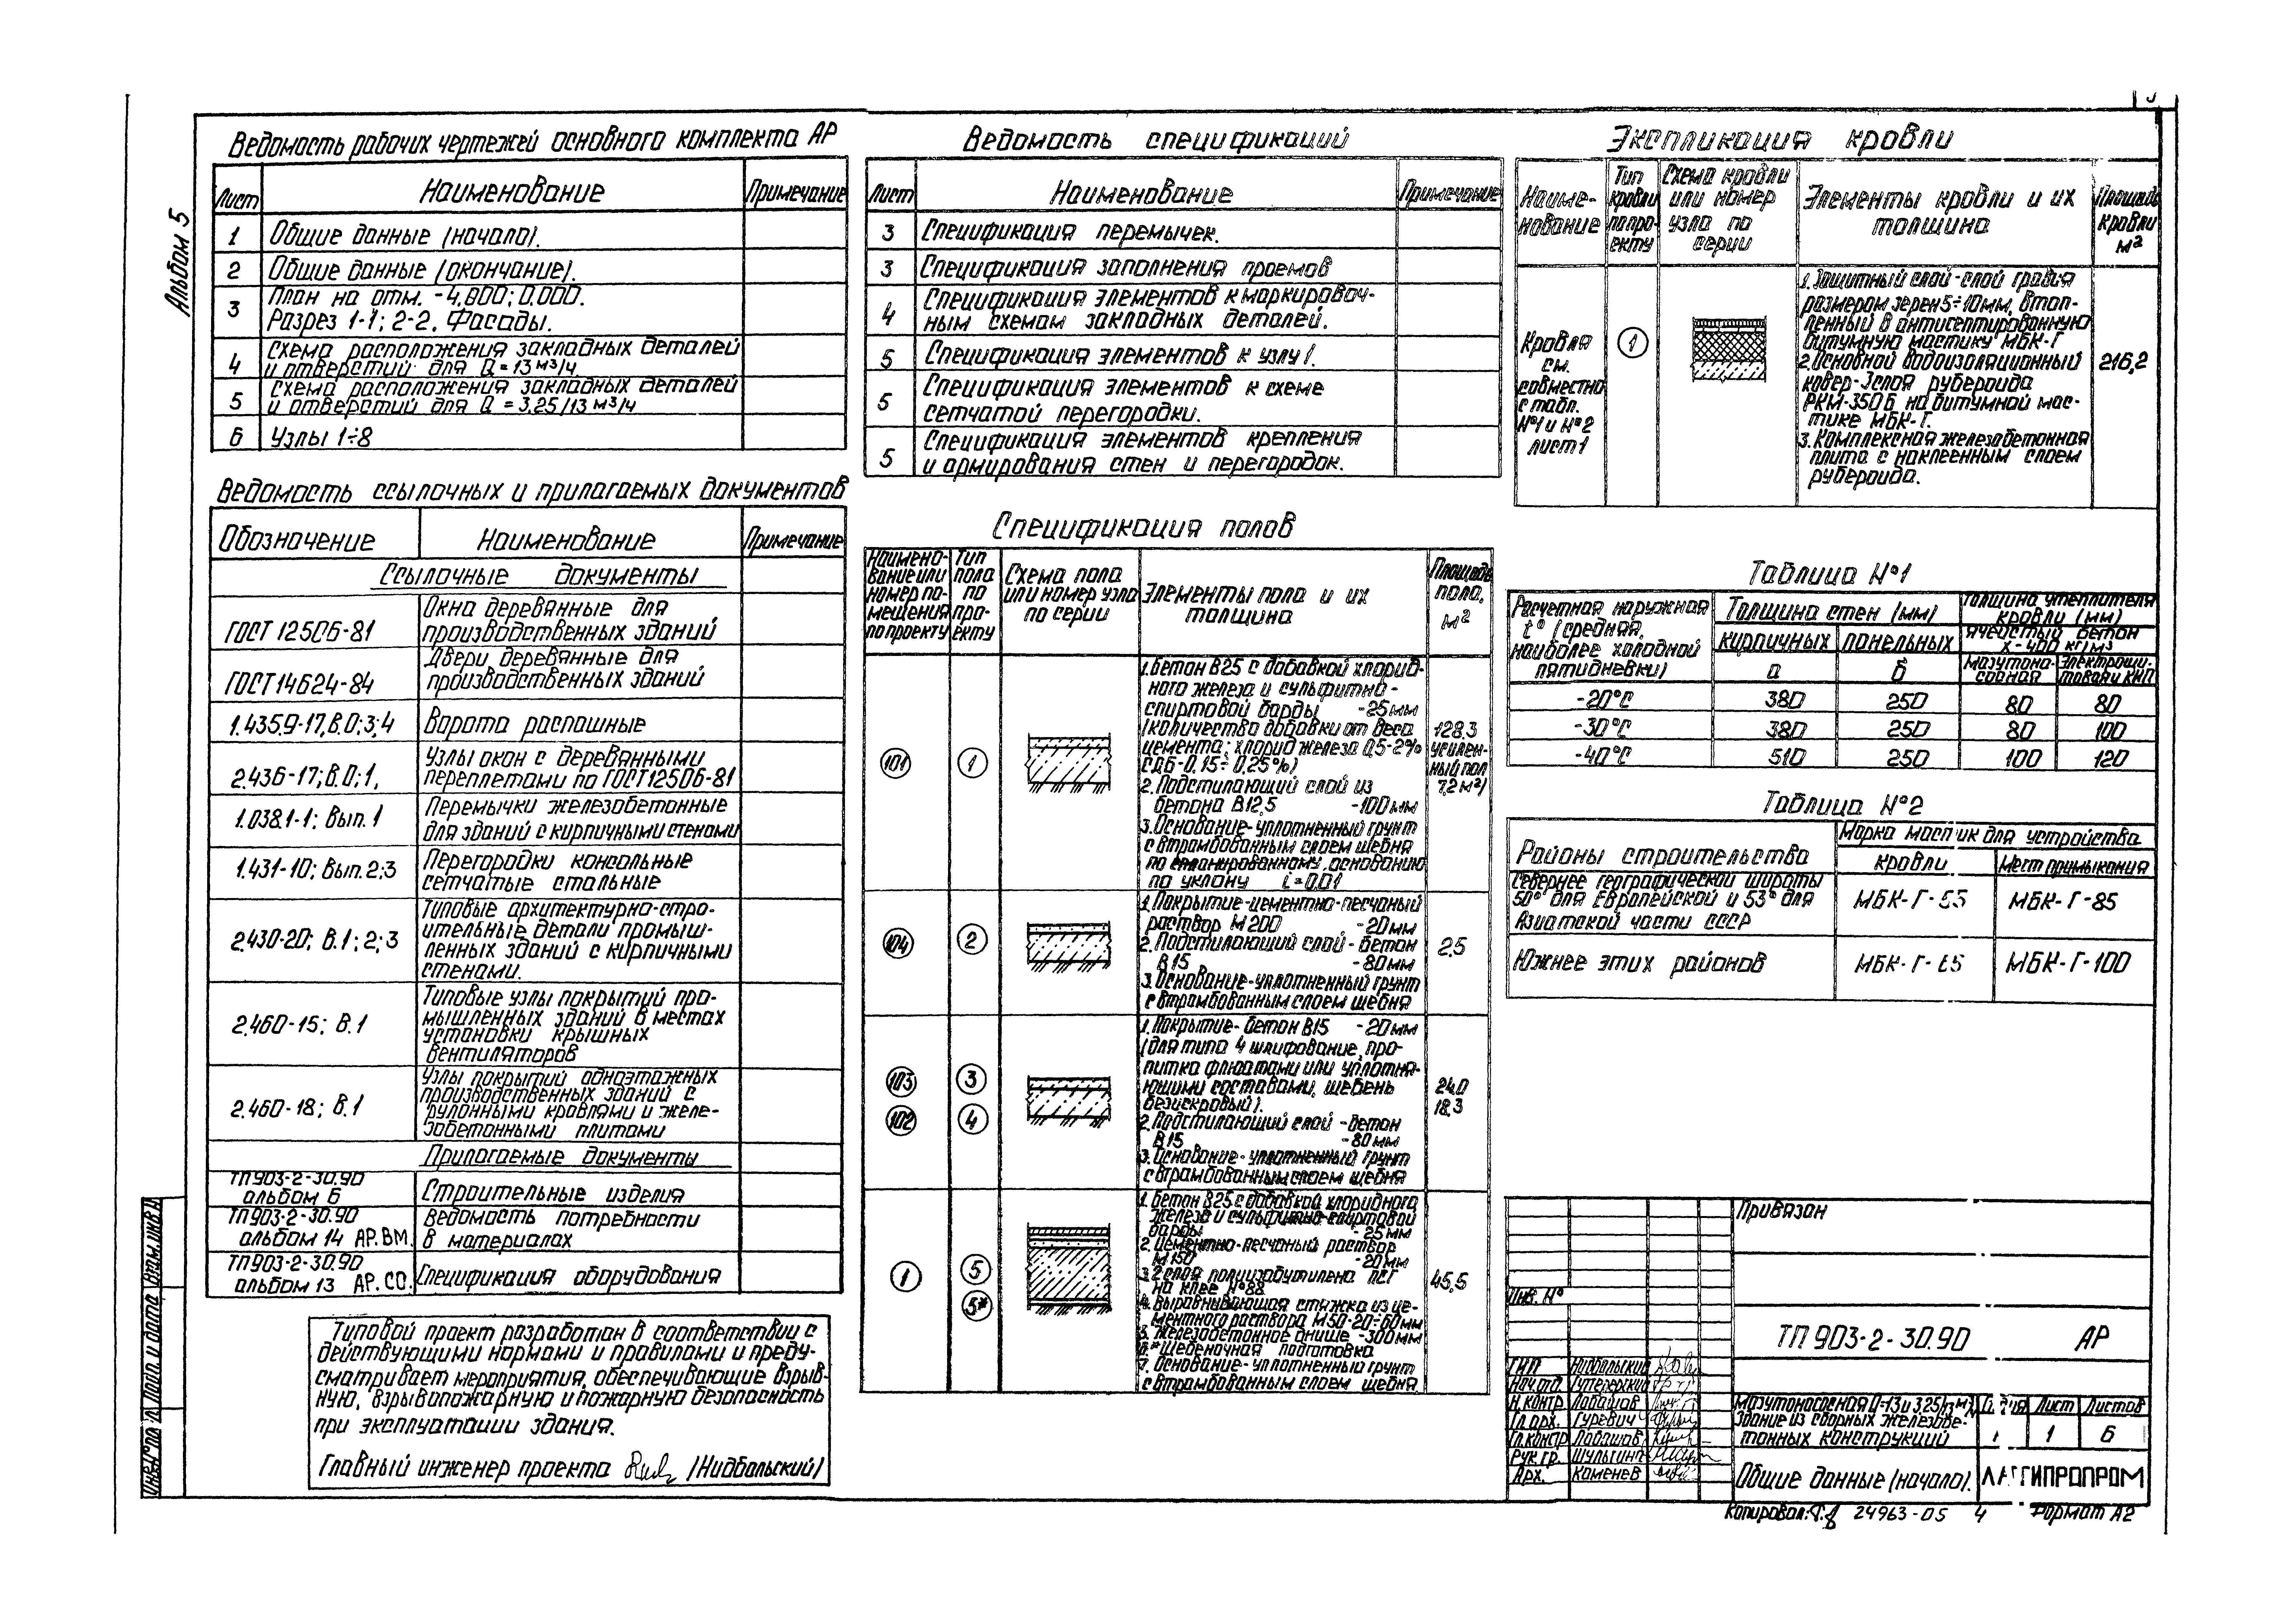 Альбом 5
Ведомость рабочих чертежей основного комплекта АР
Лист Наименование Примечание
1 Общие данные (начало).
2 Общие данные (окончание).
3 План на отм. -4,800; 0.000.
Разрез 1-1; 2-2. Фасады.
4 Схема расположения закладных деталей
и отверстий для Q = 13 м³/ч
5 Схема расположения закладных деталей
и отверстий для Q = 3,25/13 м³/ч
6 Узлы 1÷8
Ведомость ссылочных и прилагаемых документов
Обозначение Наименование Примечание
Ссылочные документы
ГОСТ 12506-81 Окна деревянные для
производственных зданий
ГОСТ 14624-84 Двери деревянные для
производственных зданий
1.435.9-17, В.0; 3; 4 Ворота распашные
2.436-17; В.0; 1, Узлы окон с деревянными
переплетами по ГОСТ 12506-81
1.038.1-1; Вып. 1 Перемычки железобетонные
для зданий с кирпичными стенами
1.431-10; Вып. 2; 3 Перегородки консольные
сетчатые стальные
2.430-20; В.1; 2; 3 Типовые архитектурно-стро-
ительные детали промыш-
ленных зданий с кирпичными
стенами.
2.460-15; В.1 Типовые узлы покрытий про-
мышленных зданий в местах
установки крышных
вентиляторов
2.460-18; В.1 Узлы покрытий одноэтажных
производственных зданий с
рулонными кровлями и желе-
зобетонными плитами
Прилагаемые документы
ТП 903-2-30.90
альбом 6 Строительные изделия
ТП 903-2-30.90
альбом 14 АР.ВМ. Ведомость потребности
в материалах
ТП 903-2-30.90
альбом 13 АР.СО. Спецификация оборудования
Типовой проект разработан в соответствии с
действующими нормами и правилами и преду-
сматривает мероприятия, обеспечивающие взрыв-
ную, взрывопожарную и пожарную безопасность
при эксплуатации здания.
Главный инженер проекта /Нидбальский/
Ведомость спецификаций
Лист Наименование Примечание
3 Спецификация перемычек.
3 Спецификация заполнения проемов
4 Спецификация элементов к маркировоч-
ным схемам закладных деталей.
5 Спецификация элементов к узлу 1.
5 Спецификация элементов к схеме
сетчатой перегородки.
5 Спецификация элементов крепления
и армирования стен и перегородок.
Спецификация полов
Наимено-
вание или
номер по-
мещения
по проекту
Тип
пола
по
про-
екту
Схема пола
или номер узла
по серии
Элементы пола и их
толщина
Площадь
пола,
м²
101 1
1. Бетон В25 с добавкой хлорид-
ного железа и сульфитно-
спиртовой барды -25мм
(количество добавки от веса
цемента: хлорид железа 0,5-2%
СДБ-0,15÷0,25%)
2. Подстилающий слой из
бетона В12,5 -100мм
3. Основание-уплотненный грунт
с втрамбованным слоем щебня
по спланированному основанию
по уклону i=0.01
128.3
усилен-
ный пол
7,2 м²)
104 2
1. Покрытие-цементно-песчаный
раствор М200 -20мм
2. Подстилающий слой - бетон
В15 -80мм
3. Основание-уплотненный грунт
с втрамбованным слоем щебня
2,5
103 3
102 4
1. Покрытие-бетон В15 -20мм
(для типа 4 шлифование, про-
питка флюатами или уплотня-
ющими составами, щебень
безискровый).
2. Подстилающий слой - бетон
В15 -80мм
3. Основание-уплотненный грунт
с втрамбованным слоем щебня
24.0
18.3
1 5
5*
1. Бетон В25 с добавкой хлоридного
железа и сульфитно-спиртовой
барды -25мм
2. Цементно-песчаный раствор
М150 -20мм
3. 2 слоя полиизобутилена ПСГ
на клее №88
4. Выравнивающая стяжка из це-
ментного раствора М50-20÷60мм
5. Железобетонное днище -300мм
6.* Щебеночная подготовка
7. Основание-уплотненный грунт
с втрамбованным слоем щебня
45,5
Экспликация кровли
Наиме-
нование
Тип
кровли
по про-
екту
Схема кровли
или номер
узла по
серии
Элементы кровли и их
толщина
Площадь
кровли
м²
Кровля
см.
совместно
с табл.
№1 и №2
лист 1
1
1. Защитный слой-слой гравия
размером зерен 5÷10мм, втоп-
ленный в антисептированную
битумную мастику МБК-Г
2. Основной водоизоляционный
ковер-3слоя рубероида
РКМ-350Б на битумной мас-
тике МБК-Г.
3. Комплексная железобетонная
плита с наклеенным слоем
рубероида.
216,2
Таблица №1
Расчетная наружная
t° (средняя,
наиболее холодной
пятидневки)
Толщина стен (мм)
кирпичных панельных
а б
Толщина утеплителя
кровли (мм)
ячеистый бетон
γ-400 кг/м³
Мазутона-
сосная
Электрощи-
товая и КИП
-20°С 380 250 80 80
-30°С 380 250 80 100
-40°С 510 250 100 120
Таблица №2
Районы строительства
Марка мастик для устройства
кровли Мест примыкания
Севернее географической широты
50° для Европейской и 53° для
Азиатской части СССР
МБК-Г-55 МБК-Г-85
Южнее этих районов МБК-Г-65 МБК-Г-100
Привязан
Инв. №
ТП 903-2-30.90 АР
ГИП Нидбальский
Нач.отд.
Н.контр Лабашов
Гл.арх. Гуревич
Гл.констр Лабашов
Рук.гр. Шульгина
Арх. Каменев
Мазутонасосная Q-13 и 3.25/13 м³/ч
Здание из сборных железобе-
тонных конструкций
Лист Листов
1 6
Общие данные (начало).
ЛАТГИПРОПРОМ
Копировал: 24963-05 4 Формат А2
Инв.№ подл. Подп. и дата Взам.инв.№